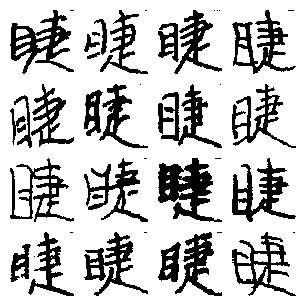 睫睫睫睫
睫睫睫睫
睫睫睫睫
睫睫睫睫